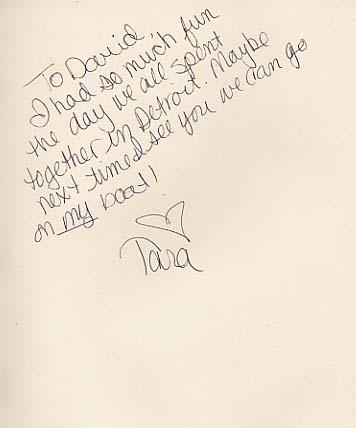 To David,
I had so much fun
the day we all spent
together in Detroit. Maybe
next time I see you we can go
on my boat!
Tara